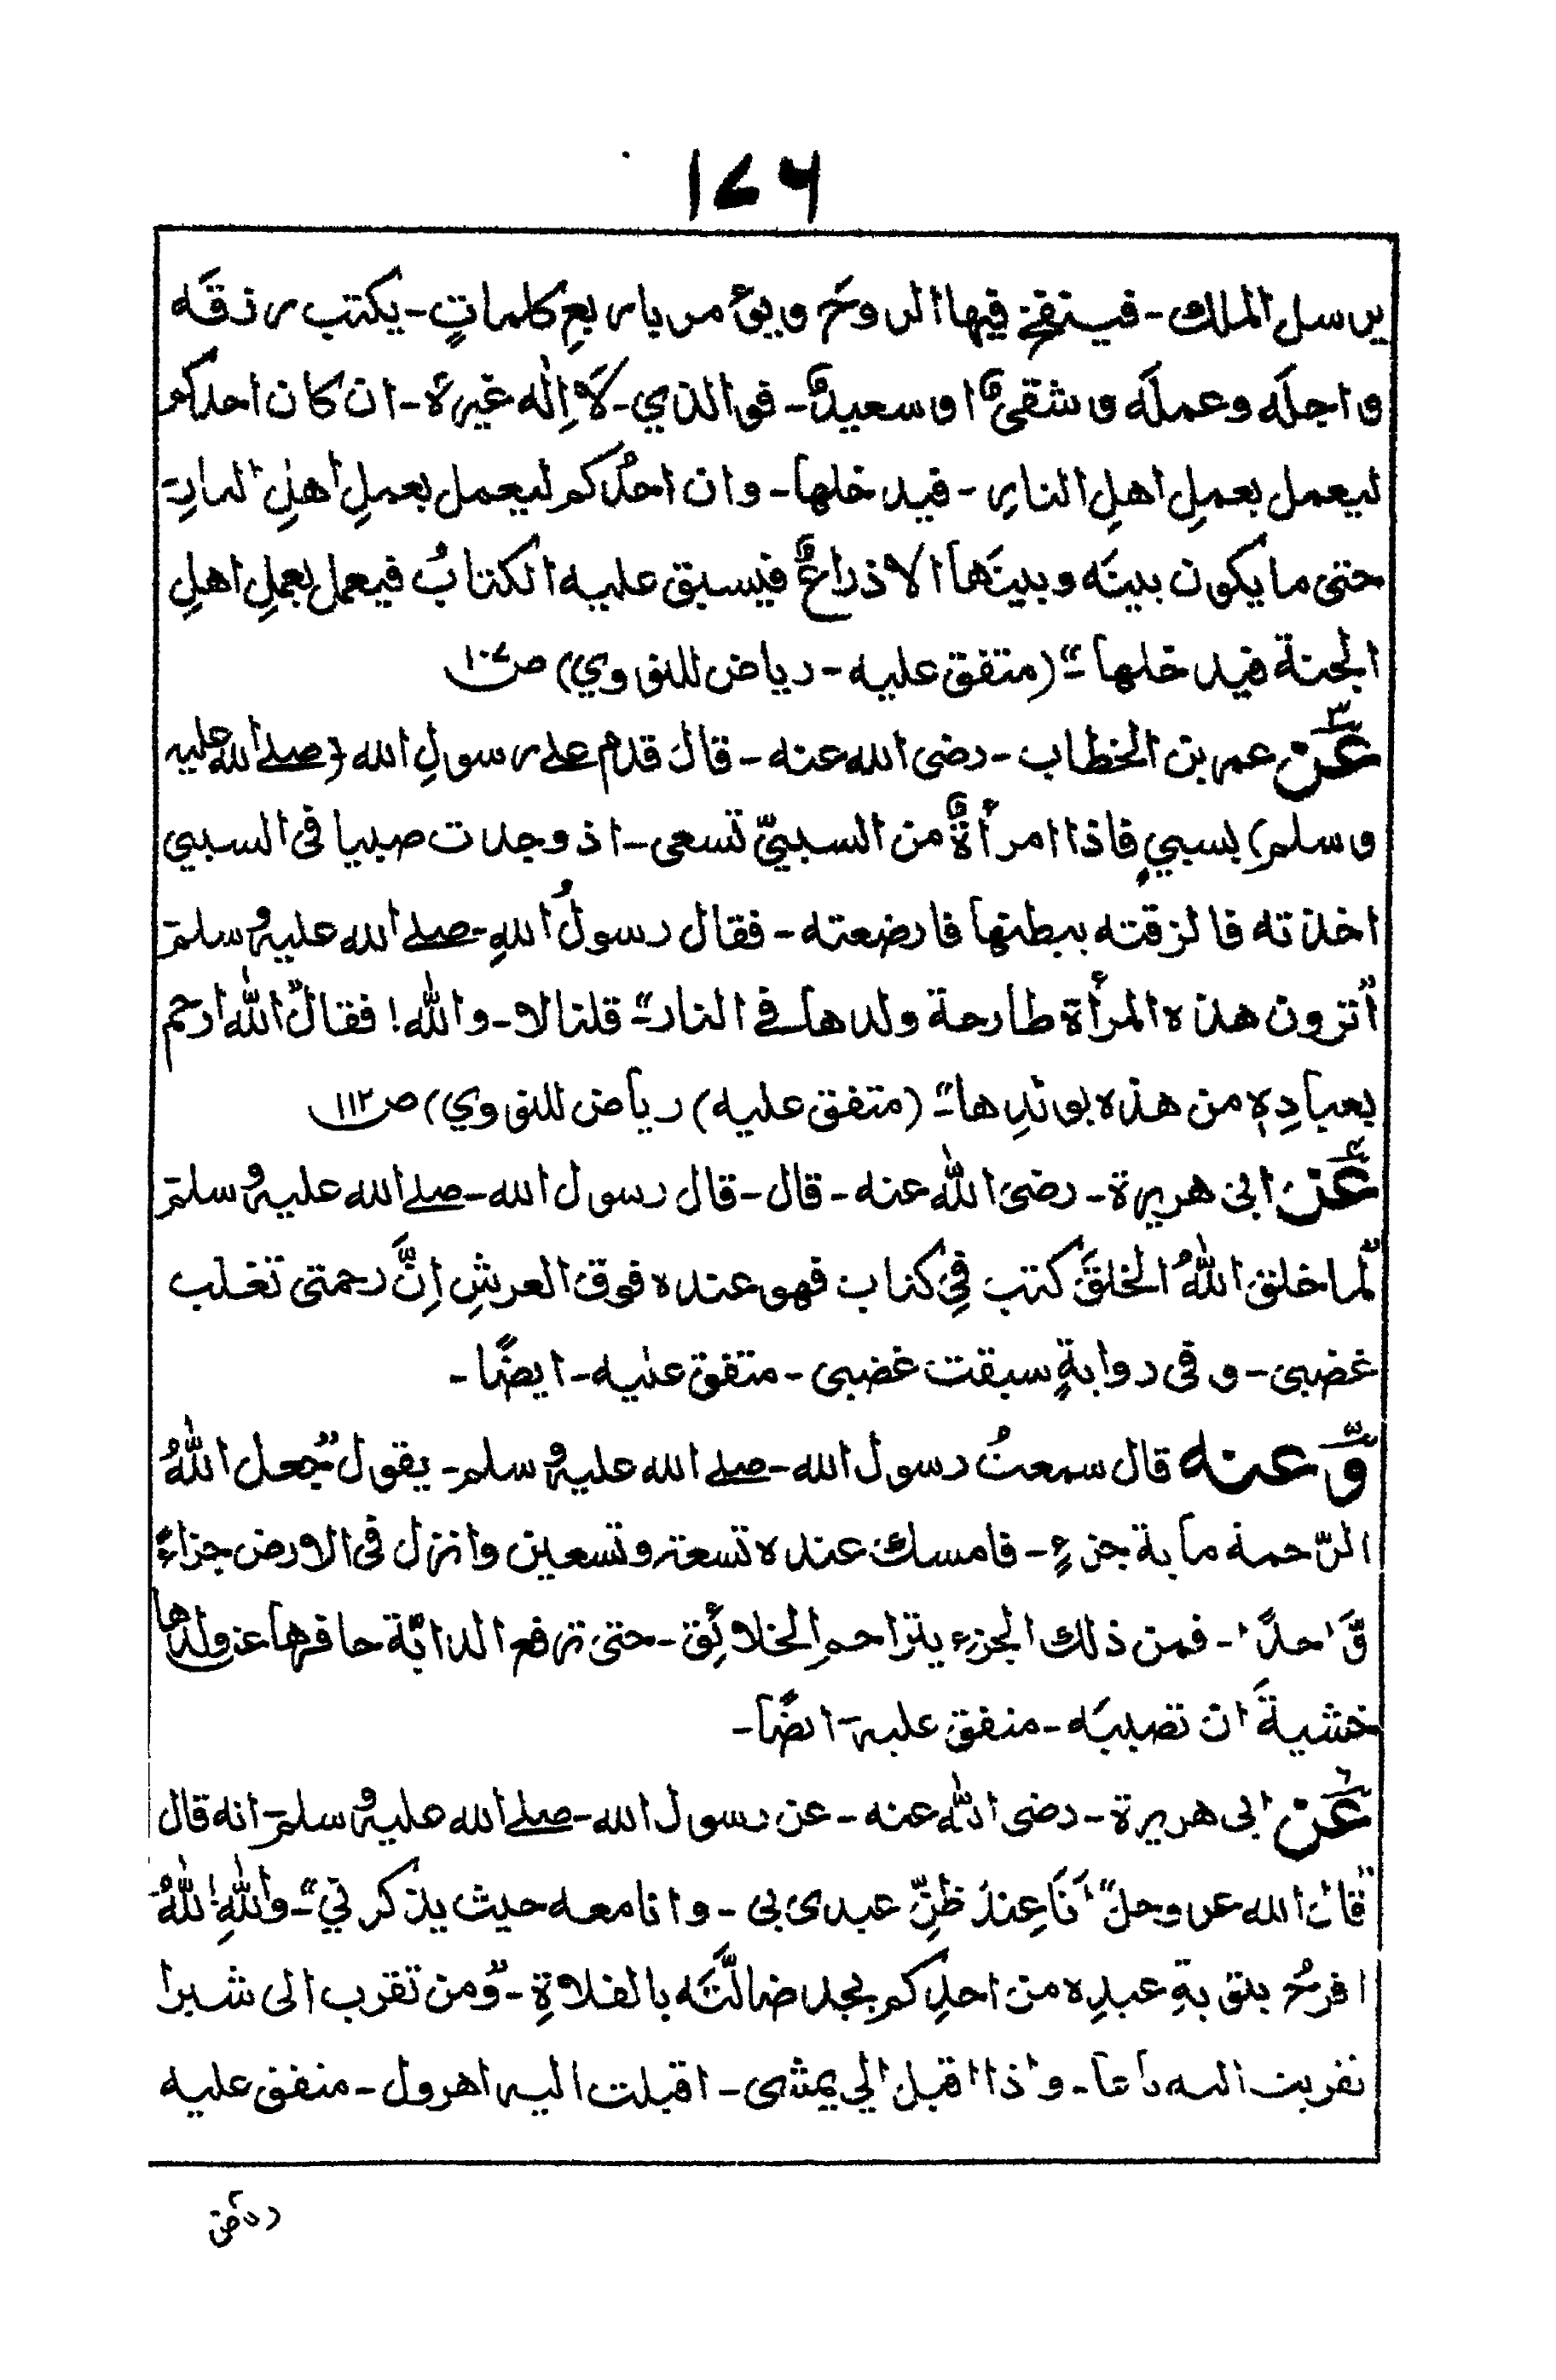 ۱۷۶
يرسل الملك - فينفخ فيها الروحَ ويؤمر باربعِ كلماتٍ - يكتب رزقَه
واجلَه وعملَه وشقيٌّ او سعيدٌ - فوالذي - لَا اِلٰه غيره - ان كان احدكم
ليعمل بعملِ اهلِ النارِ - فيدخلها - وان احدُكم ليعمل بعملِ اهلِ النارِ -
حتى ما يكون بينَه وبينَها الا ذراعٌ فيسبق عليه الكتابُ فيعمل بعملِ اهلِ
الجنة فيدخلها -" (متفق عليه - رياض للنووي) ص۱۰۷
عَن۳ عمر بن الخطاب - رضى الله عنه - قال قدم على رسولِ الله (صلے الله عليه
وسلم) بسبيٍ فاذا امرأةٌ من السبيّ تسعى - اذ وجدت صبيا فى السبي
اخذته فالزقته ببطنها فارضعته - فقال رسولُ اللهِ - صلے الله عليه وسلم -
"أترون هذه المرأة طارحة ولدها فى النار -" قلنا لا - والله! فقال "الله ارحم
بعبادِهِ من هذه بولَدِها -" (متفق عليه) رياض للنووي) ص۱۱۲
عَن۴ ابى هريرة - رضى الله عنه - قال - قال رسول الله - صلے الله عليه وسلم -
"لما خلق اللهُ الخلقَ كتب فِي كتاب فهو عنده فوق العرشِ اِنَّ رحمتى تغلب
غضبى - وفى روايةٍ سبقت غضبى - متفق عليه - ايضًا -
وَعنه قال سمعتُ رسول الله - صلے الله عليه وسلم - يقول "جعل اللهُ
الرّحمة ماية جزءٍ - فامسك عنده تسعة وتسعين وانزل فى الارض جزاءً
وَّاحدًا - فمن ذلك الجزء يتراحم الخلائِق - حتى ترفع الدابّة حافرها عن ولدها
خشيةَ ان تصيبَه - متفق عليه - ايضًا -
عَن۶ ابى هريرة - رضى الله عنه - عن رسول الله - صلے الله عليه وسلم - انه قال
"قال الله عز وجل "اَنَا عِندَ ظنِّ عبدى بى - وانا معه حيث يذكرني" - واللهِ لَلّٰهُ
افرحُ بتوبةِ عبدِه من احدِكم يجد ضالَّتَه بالفلاةِ - "ومن تقرب الى شبرا
تقربت اليه باعا - واذا اقبل الي يمشى - اقبلت اليه اهرول - متفق عليه